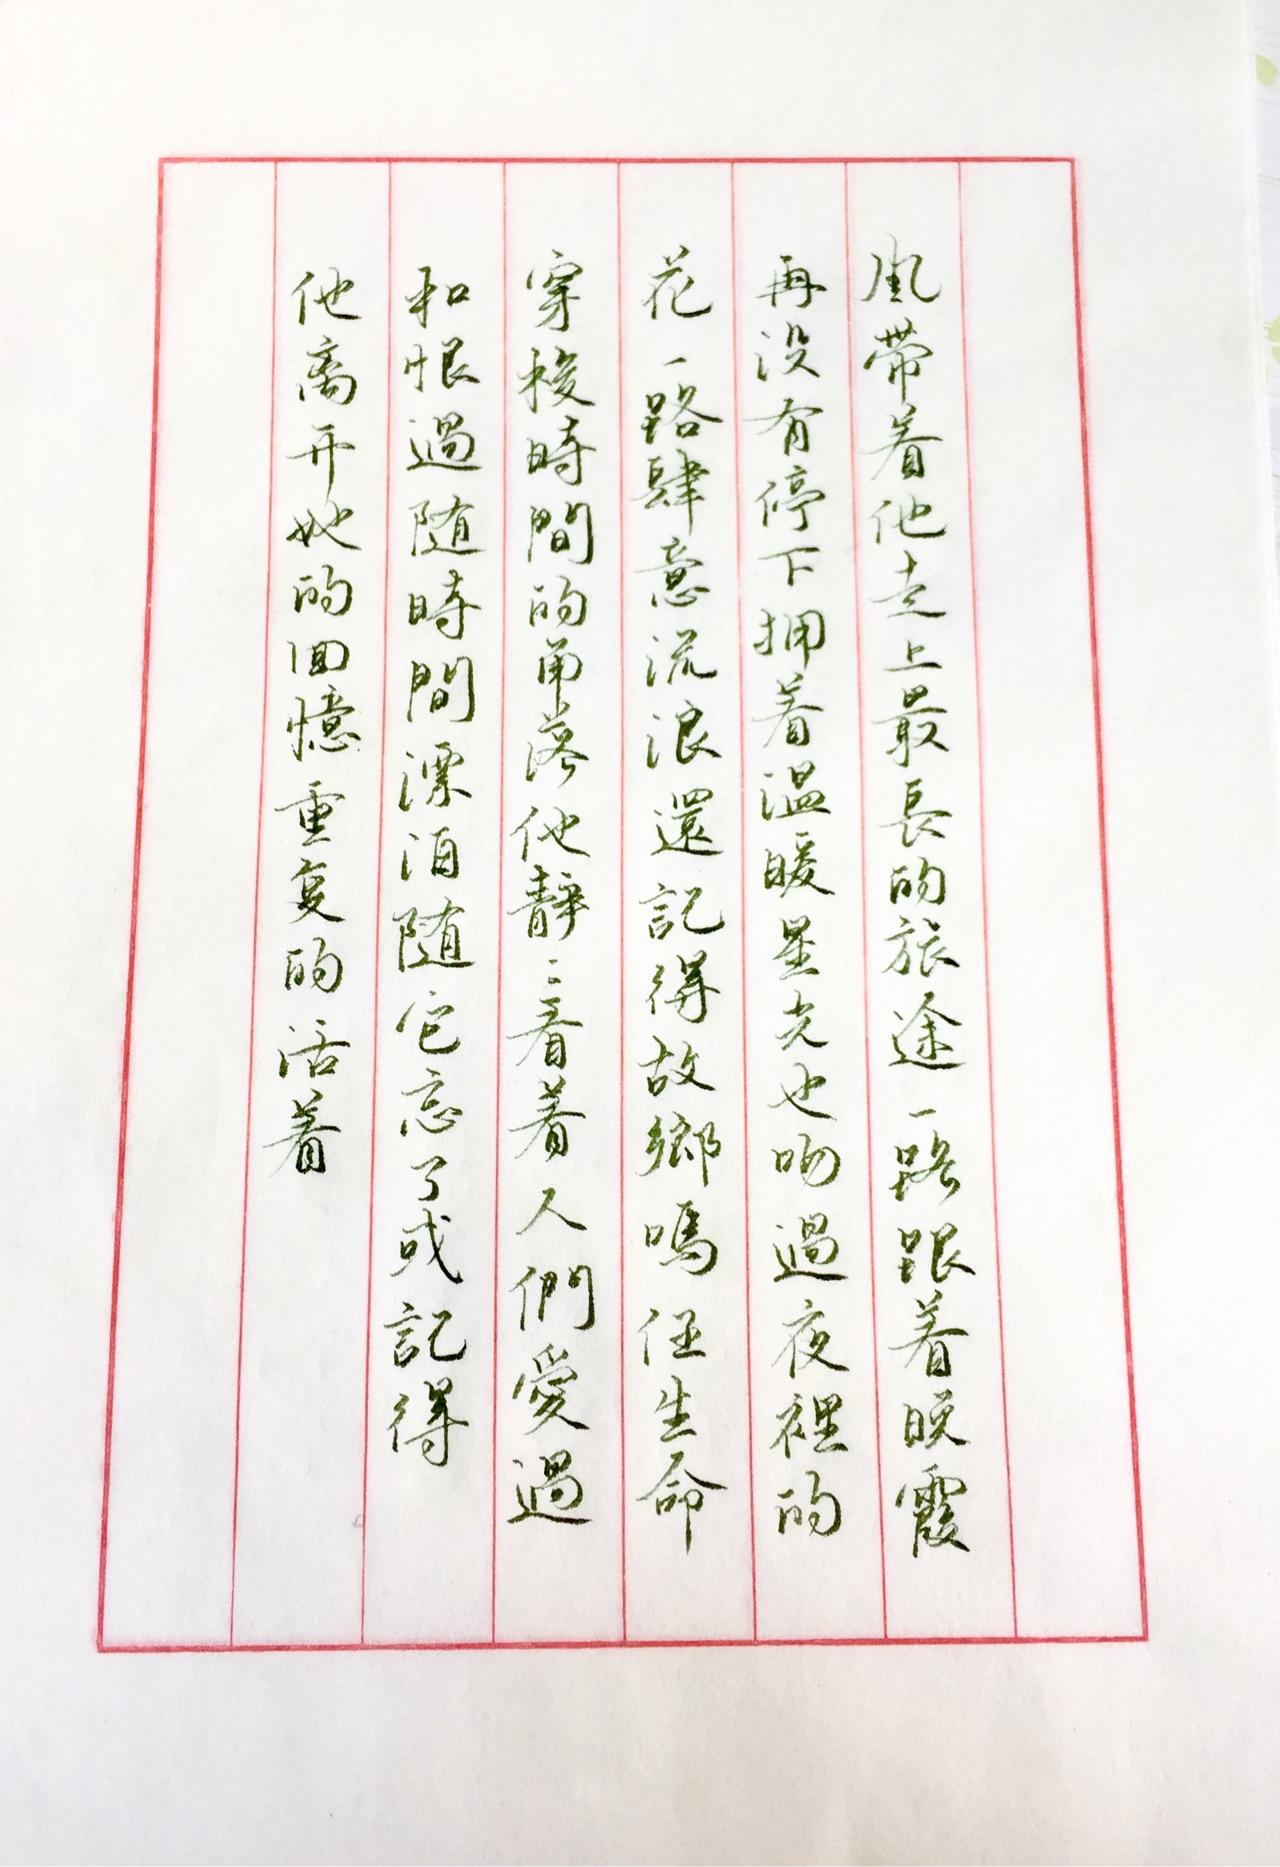 風带着他走上最長的旅途一路跟着晚霞
再没有停下拥着温暖星光也吻過夜裡的
花一路肆意流浪還記得故鄉嗎任生命
穿梭時間的角落他静〻看着人們愛過
和恨過随時間漂泊随它忘了或記得
他离开她的回憶重复的活着